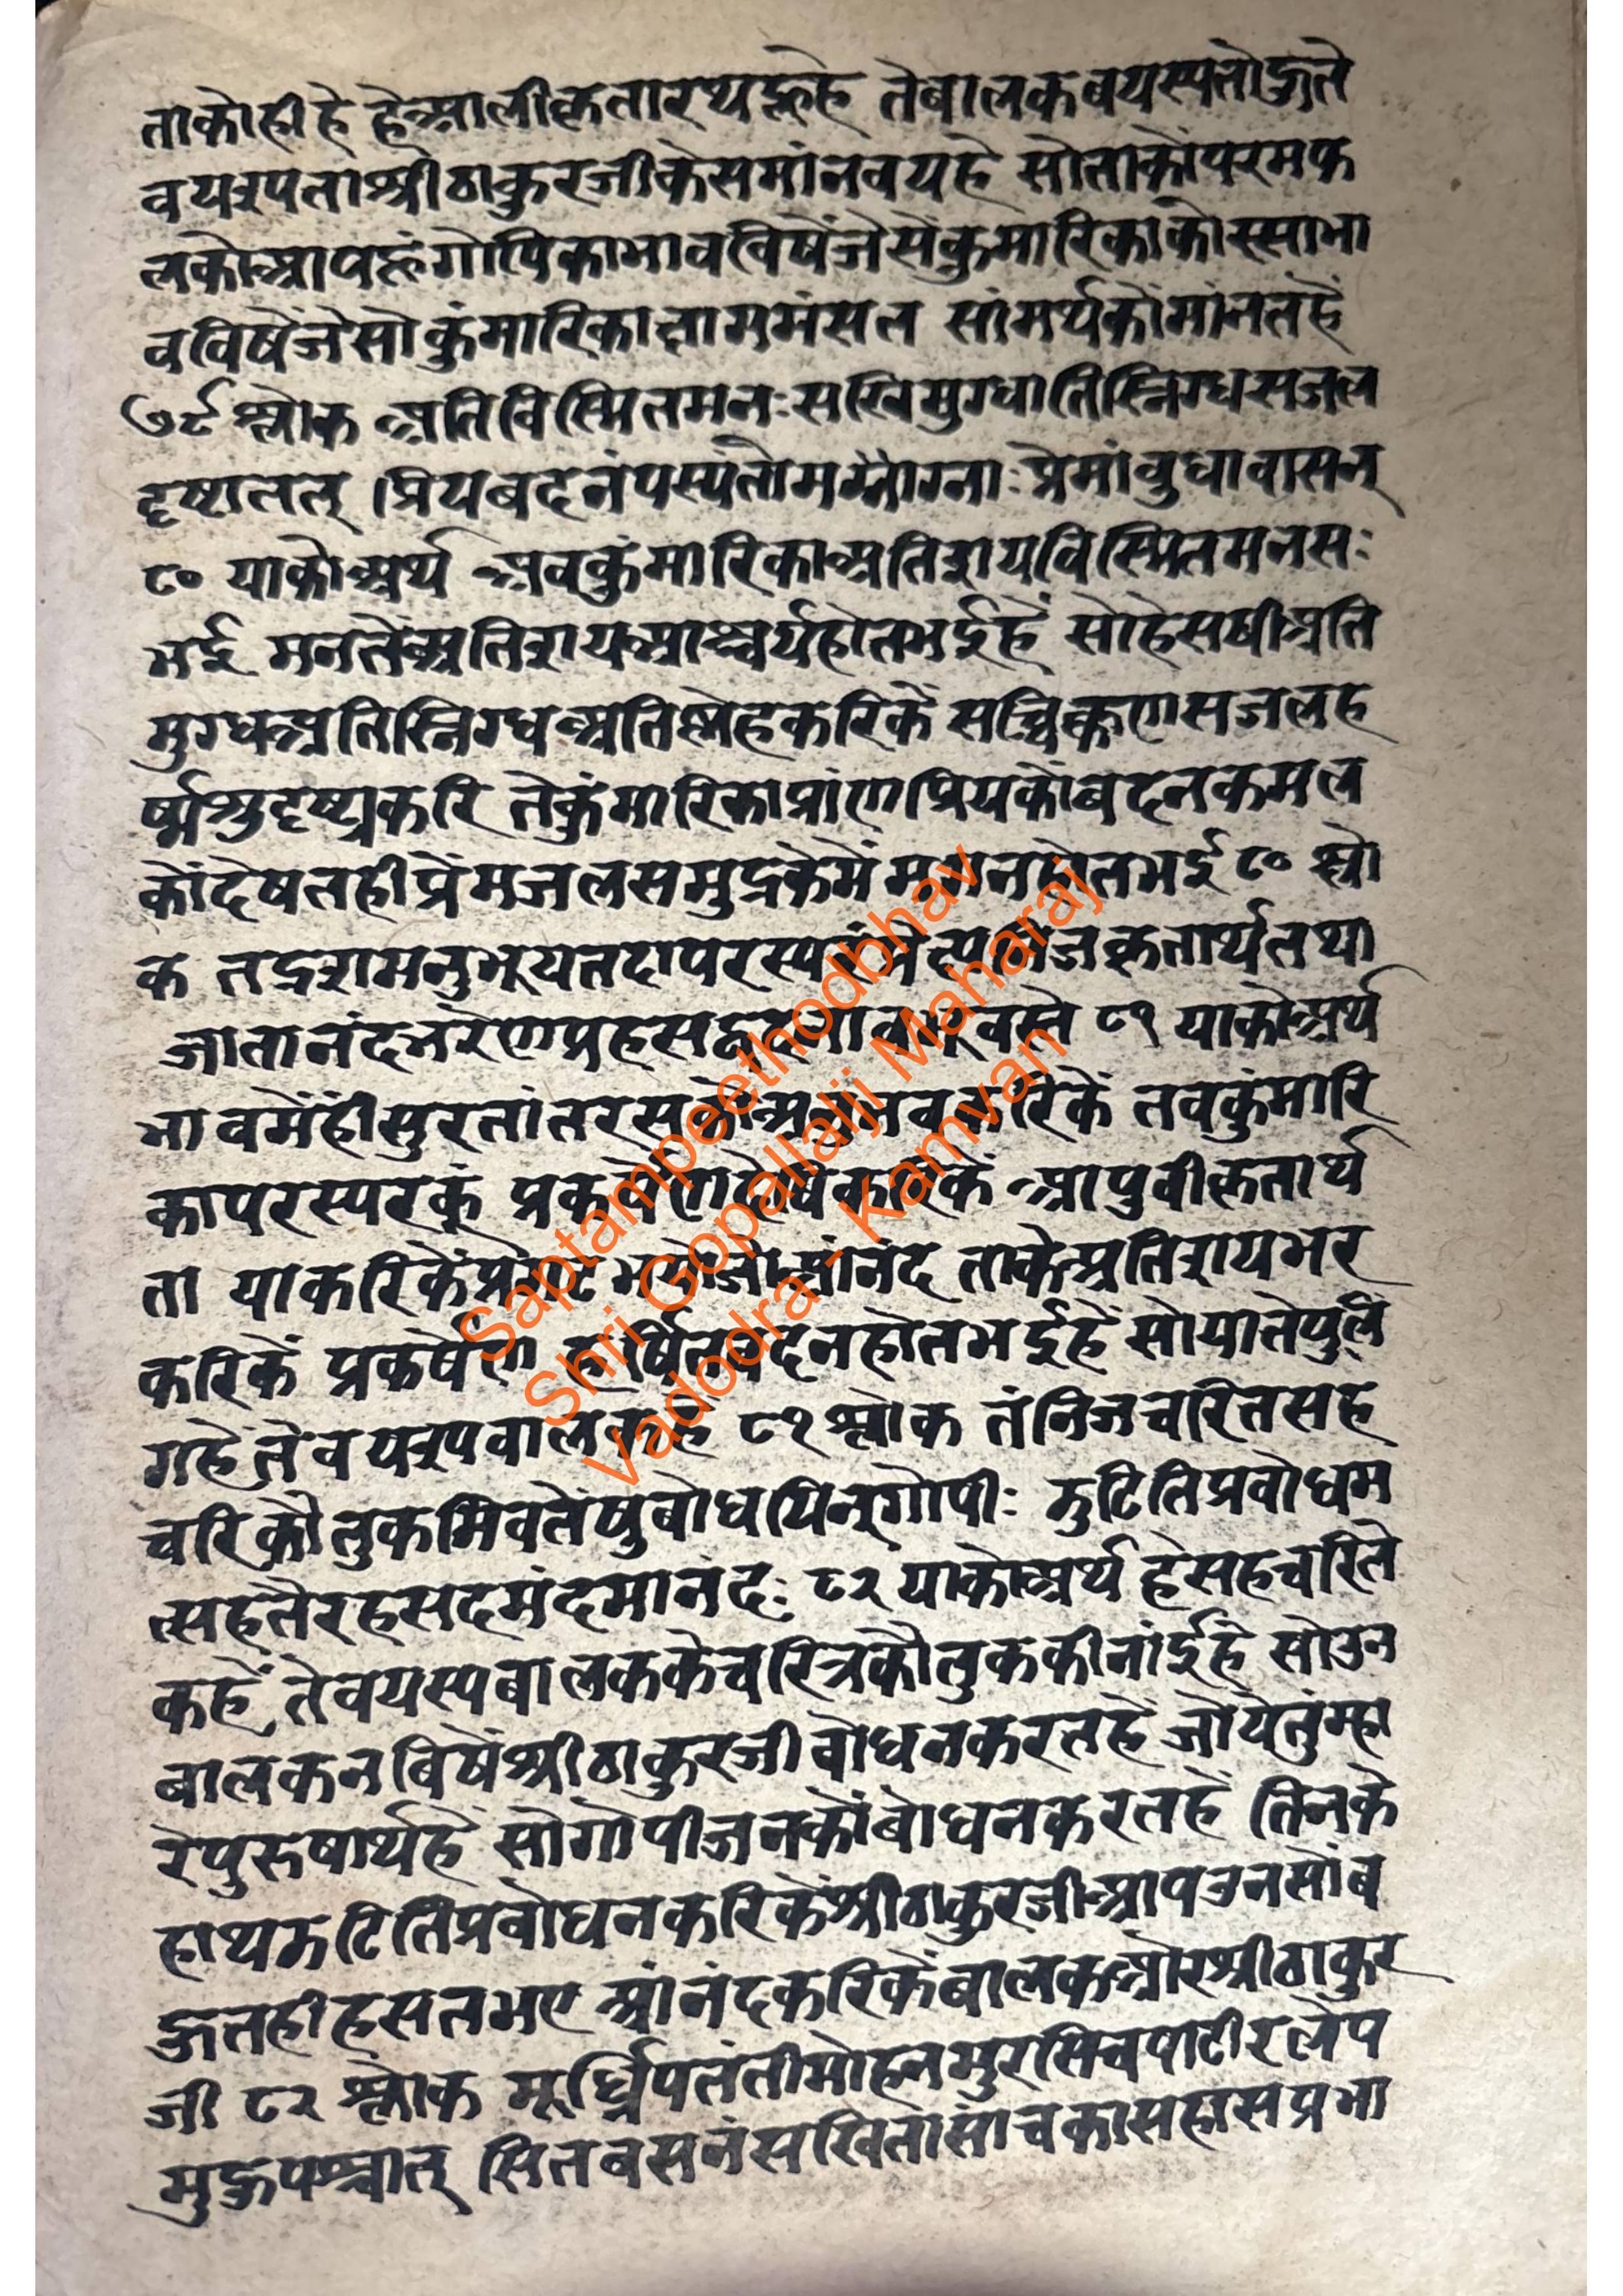 ताकोहीहे हेआलीकृतारथहूहे तेबालकबयस्पतोऊते
वयरूपतोश्रीठाकुरजीकेसमांनवयहे सोताकोंपरमफ
लकोआपहूंगोपिकाभावविषेंजेसेंकुमारिकाकोस्साभा
वविषेंजेसोकुंमारिका सांमर्थकोंमांनतहैं
७९ श्लोक अतिविस्मितमनःसखिमुग्धातिस्निग्धसजल
दृष्ट्यातत् ।प्रियबदनंपस्यंतो प्रेमांवुधावासन्
८० याकोअर्थ अवकुंमारिकाअतिशयविस्मितमनसः
भई मनतेंअतिशयआश्चर्यहोतभईहैं सोहेसषीअति
मुग्धअतिस्निग्धअतिस्नेहकरिकें सच्चिक्कणसजलह
र्षाश्रुदृष्ट्यकरि तेकुंमारिकाप्रांणप्रियकोंबदनकमल
कोंदेषतहीप्रेंमजलसमुद्रकेमें मगनहोतभई ८० श्लो
क तद्रशमनुभूयतदापरस्परं कृतार्थतथा
जातानंदभरेणप्रहसद्वदना वभूवस्ते ८१ याकोअर्थ
भावमेंहींसुरतांतरसकोअनुभवकरिकें तवकुंमारि
कापरस्परकूं प्रकर्षेणदेषिकरिकें आपुवीकृतार्थ
ता याकरिकेंप्रगटभयोजोआंनंद ताकेअतिशयभर
करिकें प्रकर्षेण हर्षितवदनहोतभईहैं सोयातेपुलिं
गहेंतेवयरूपवालकहे ८१ श्लोक तंनिजचरितसह
चरिकौतुकमिवतेषुबोधयिन्गोपीः झुटितिप्रवोधम
त्सहतैरहसदमंदमानंदः ८२ याकोअर्थ हेसहचरिते
कहें तेवयस्पबालककेचरित्रकौतुककीनांईहे सोउन
बालकनबिषेंश्रीठाकुरजीवोधनकरतहे जोयेतुंम्हा
रेपुरुषार्थहें सोगोपीजनकोंबोधनकरतहें तिनके
हाथझटितिप्रवोधनकरिकेंश्रीठाकुरजीआपउनसोंब
ऊतहीहसतभए आंनंदकरिकेंबालकओरश्रीठाकुर
जी ८२ श्लोक मूर्ध्निपतंतीमोहनमुरसिचपाटीरलेप
मुऊपश्चात् सितवसनंसखितासांचकासहासप्रभा
Saptampeethodbhav
Shri Gopallalji Maharaj
Vadodra - Kamvan